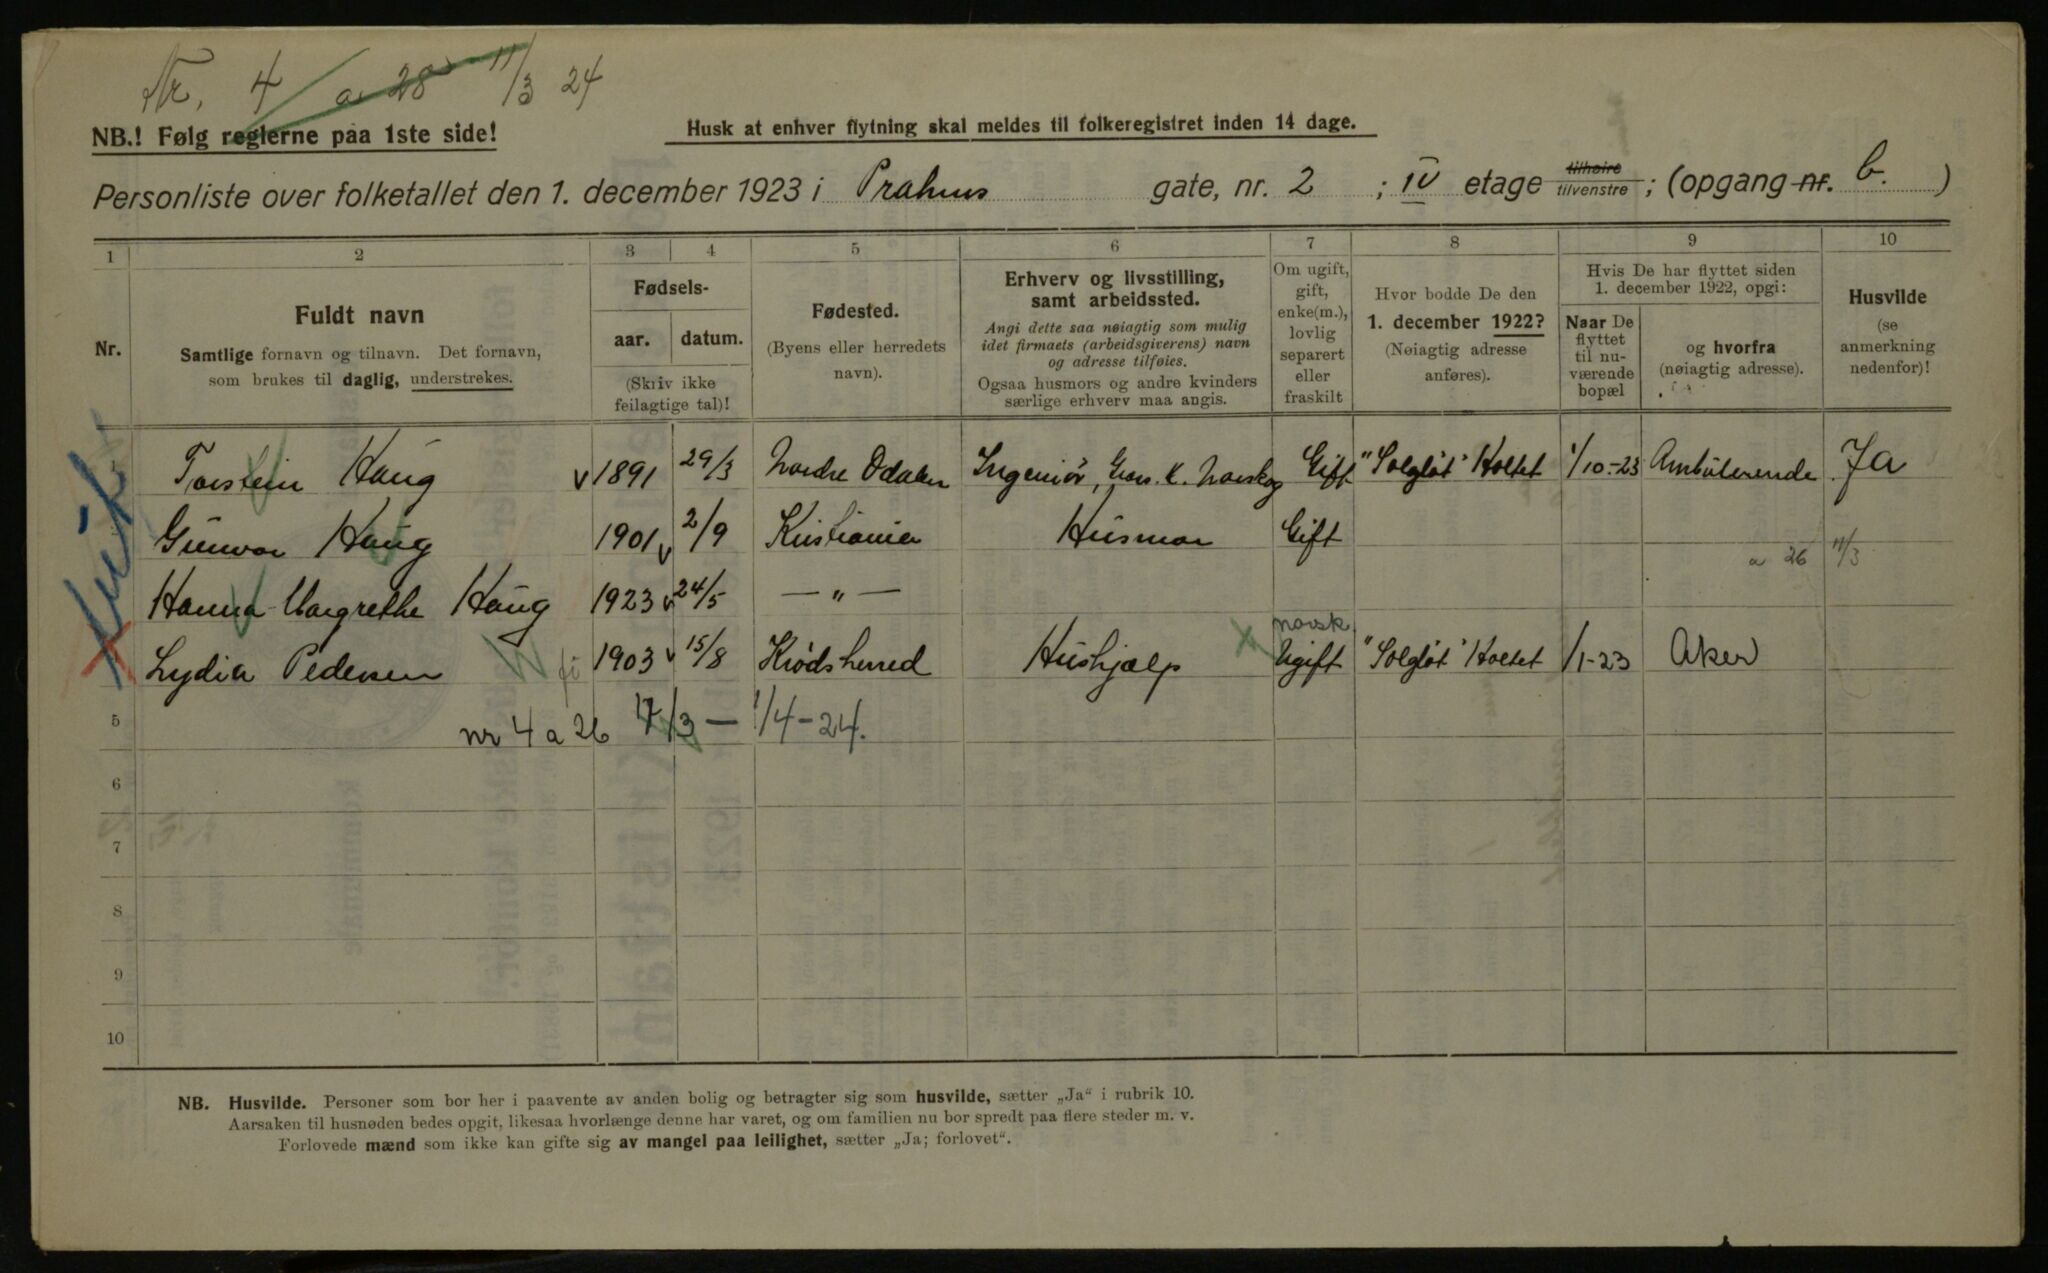 Nr. 4 a 28 11/3 24
NB.! Følg reglerne paa 1ste side!
Husk at enhver flytning skal meldes til folkeregistret inden 14 dage.
Personliste over folketallet den 1. december 1923 i Prahms gate, nr. 2 ; IV etage tilhøire tilvenstre ; (opgang nr. b. )
1 2 3 4 5 6 7 8 9 10
Nr.
Fuldt navn
Samtlige fornavn og tilnavn. Det fornavn,
som brukes til daglig, understrekes.
Fødsels-
aar. datum.
(Skriv ikke
feilagtige tal)!
Fødested.
(Byens eller herredets
navn).
Erhverv og livsstilling,
samt arbeidssted.
Angi dette saa nøiagtig som mulig
idet firmaets (arbeidsgiverens) navn
og adresse tilføies.
Ogsaa husmors og andre kvinders
særlige erhverv maa angis.
Om ugift,
gift,
enke(m.),
lovlig
separert
eller
fraskilt
Hvor bodde De den
1. december 1922?
(Nøiagtig adresse
anføres).
Hvis De har flyttet siden
1. december 1922, opgi:
Naar De
flyttet
til nu-
værende
bopæl
og hvorfra
(nøiagtig adresse).
Husvilde
(se
anmerkning
nedenfor)!
Torstein Haug v 1891 29/3 Nordre Odalen Ingeniør, Gift "Solgløt" Holtet 1/10-23 Ambulerende Ja
Gunvor Haug 1901 v 2/9 Kristiania Husmor Gift a 26 11/3
Hanna Margrethe Haug 1923 v 24/5 — „ —
norsk
Lydia Pedersen 1903 v 15/8 Krødsherred Hushjælp x Ugift "Solgløt" Holtet 1/1-23 Aker
5 nr 4 a 26 17/3 — 1/4-24.
6
7
8
9
10
NB. Husvilde. Personer som bor her i paavente av anden bolig og betragter sig som husvilde, sætter „Ja“ i rubrik 10.
Aarsaken til husnøden bedes opgit, likesaa hvorlænge denne har varet, og om familien nu bor spredt paa flere steder m. v.
Forlovede mænd som ikke kan gifte sig av mangel paa leilighet, sætter „Ja; forlovet“.